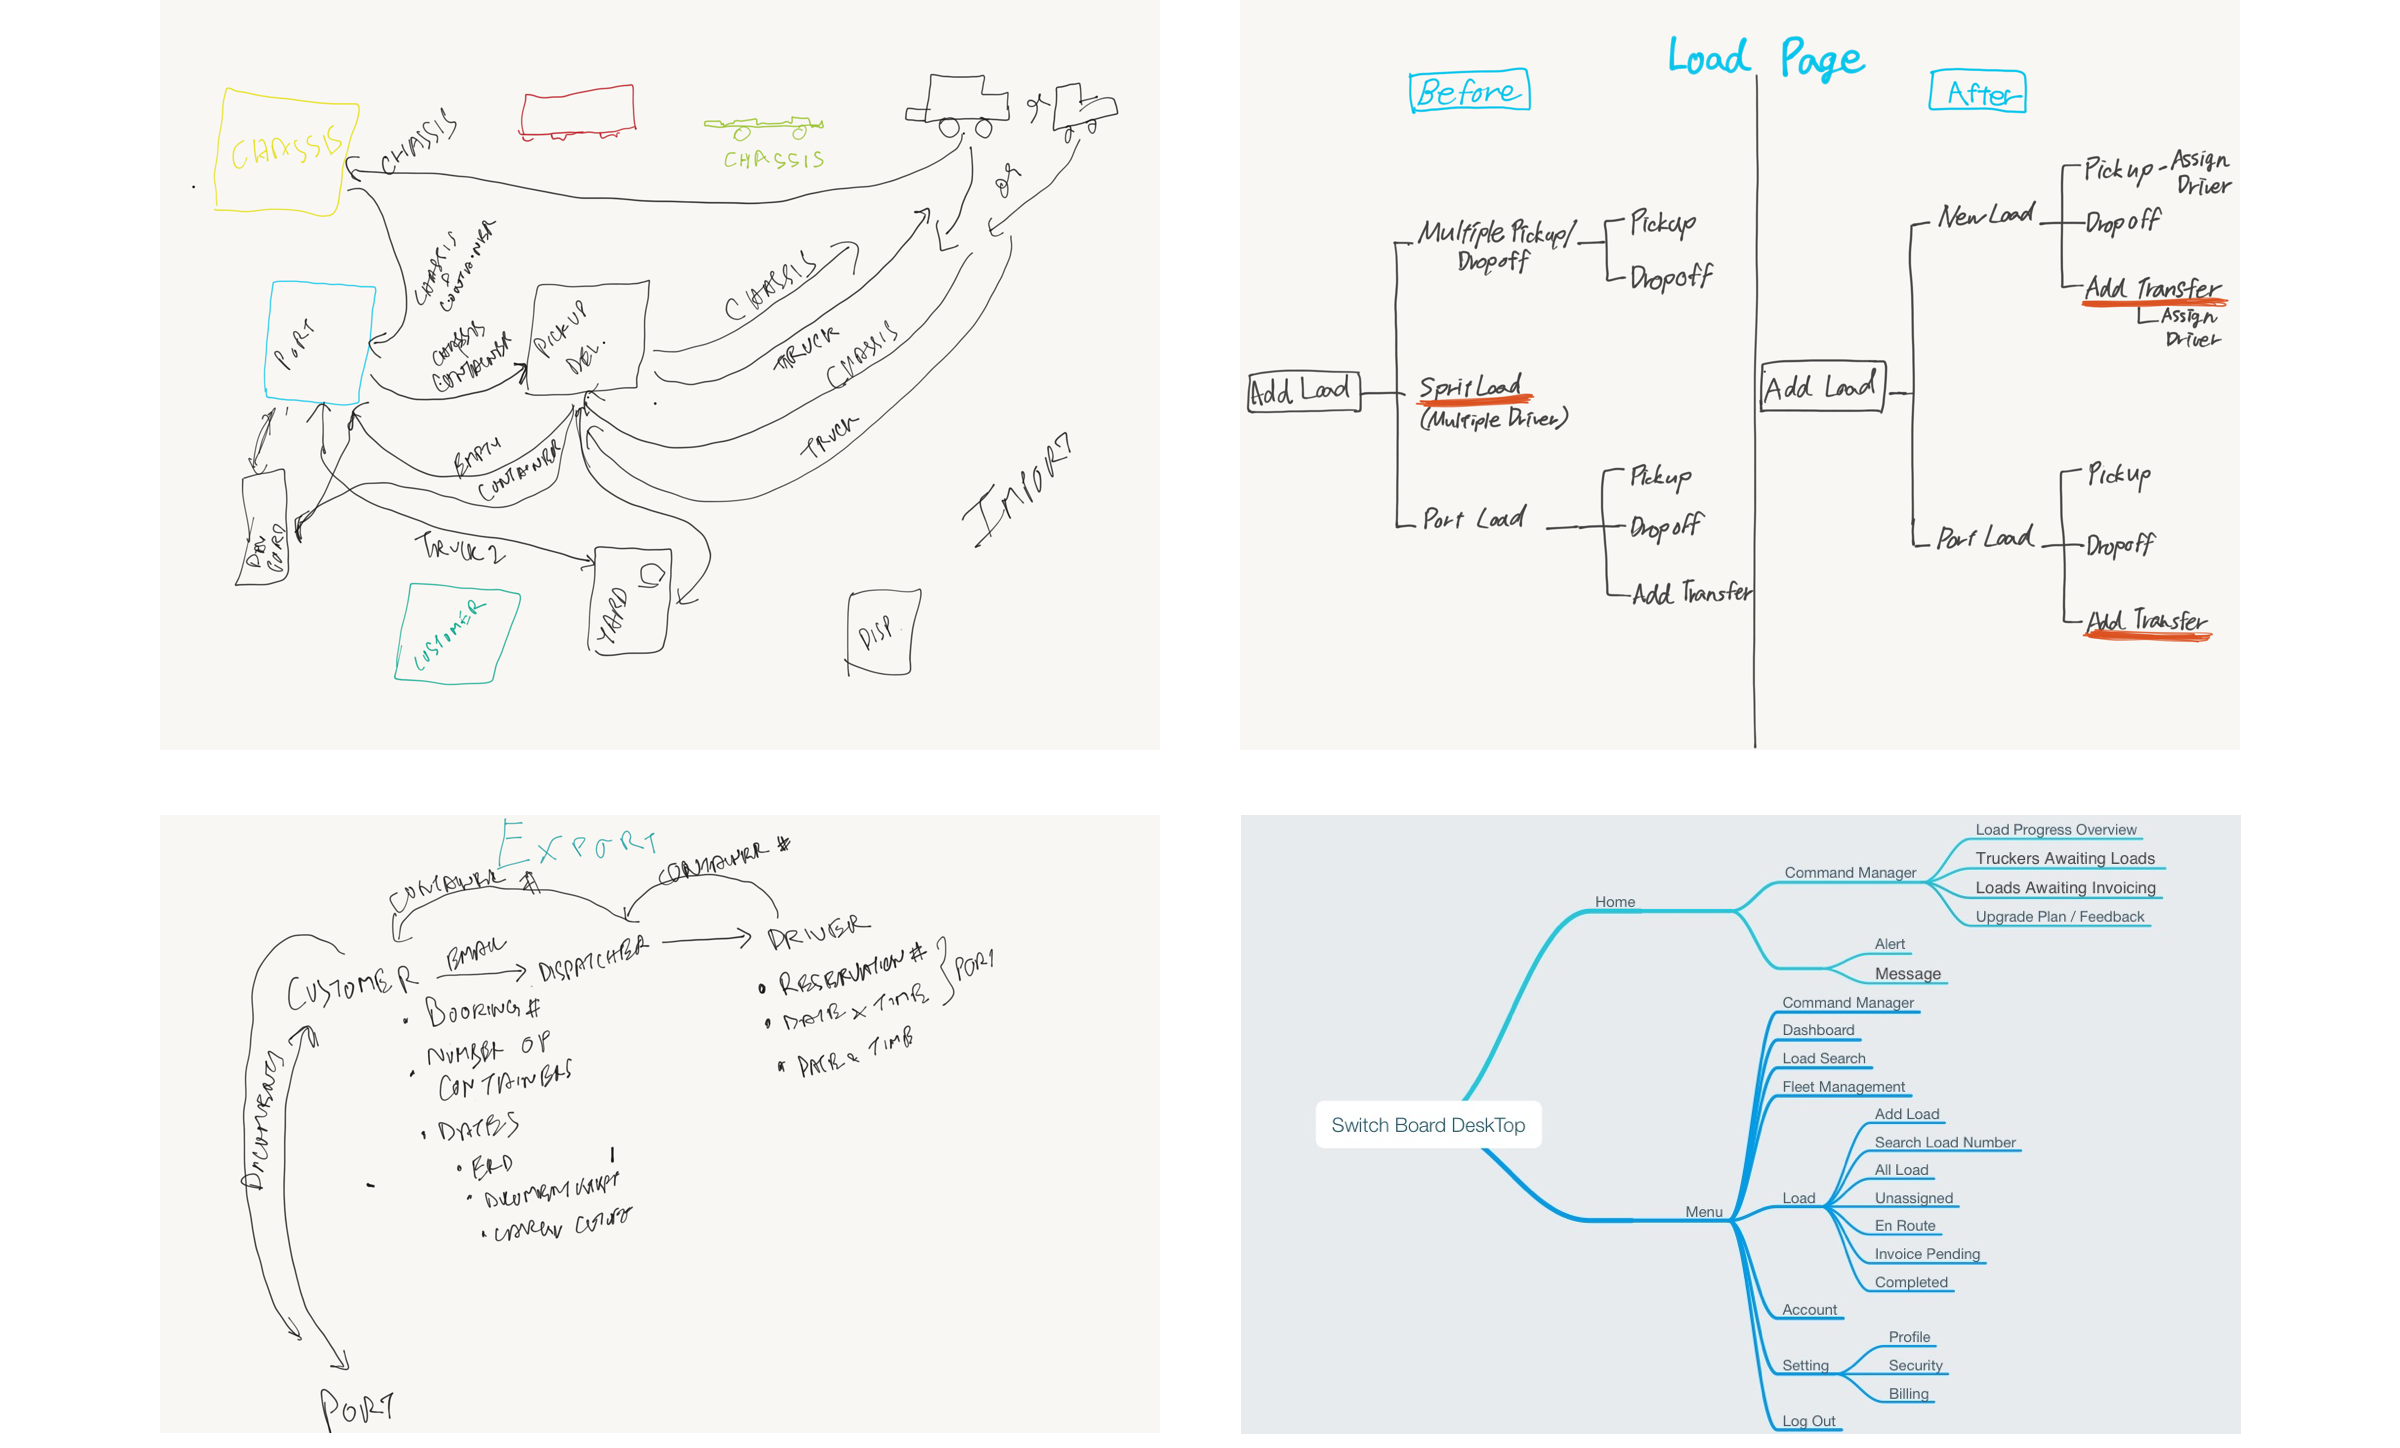 CHASSIS
CHASSIS
CHASSIS
or
or
CHASSIS
&
CONTAINER
PORT
CHASSIS
CONTAINER
PICKUP
DEL.
CHASSIS
TRUCK
CHASSIS
TRUCK
EMPTY
CONTAINER
IMPORT
TRUCK 2
YARD
CUSTOMER
DISP.
Load Page
Before
After
Add Load
Multiple Pickup/
Dropoff
Pickup
Dropoff
Sprit Load
(Multiple Driver)
Port Load
Pickup
Dropoff
Add Transfer
Add Load
New Load
Pickup - Assign
Driver
Dropoff
Add Transfer
Assign
Driver
Port Load
Pickup
Dropoff
Add Transfer
EXPORT
CONTAINER #
CONTAINER #
CUSTOMER
EMAIL
DISPATCHER
DRIVER
• BOOKING #
• NUMBER OF
CONTAINERS
• DATES
• ERD
• RESERVATION #
• DATE & TIME
PORT
• DATE & TIME
DOCUMENTS
PORT
Switch Board DeskTop
Home
Command Manager
Load Progress Overview
Truckers Awaiting Loads
Loads Awaiting Invoicing
Upgrade Plan / Feedback
Alert
Message
Menu
Command Manager
Dashboard
Load Search
Fleet Management
Load
Add Load
Search Load Number
All Load
Unassigned
En Route
Invoice Pending
Completed
Account
Setting
Profile
Security
Billing
Log Out